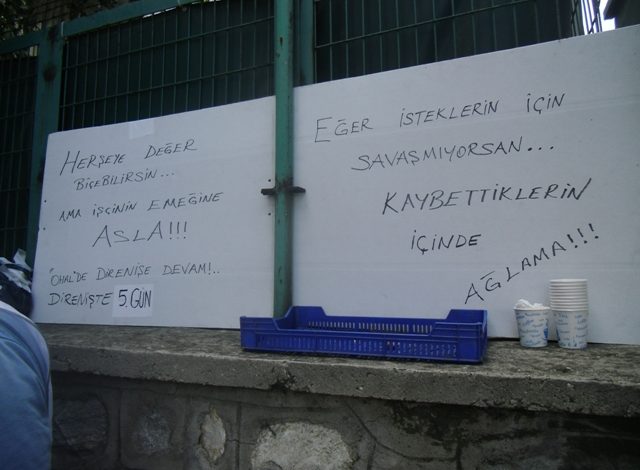 HERŞEYE DEĞER
BİÇEBİLİRSİN...
AMA İŞÇİNİN EMEĞİNE
ASLA!!!
"OHAL'DE DİRENİŞE DEVAM!..
DİRENİŞTE 5.GÜN
EĞER İSTEKLERİN İÇİN
SAVAŞMIYORSAN...
KAYBETTİKLERİN
İÇİNDE
AĞLAMA!!!